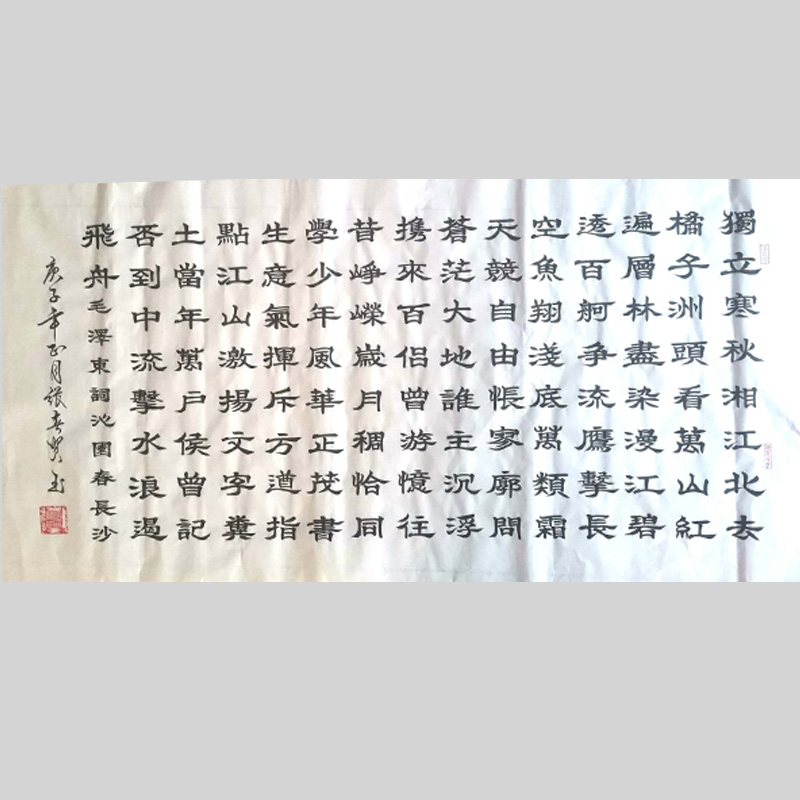 獨立寒秋湘江北去
橘子洲頭看萬山紅
遍層林盡染漫江碧
透百舸争流鷹擊長
空魚翔淺底萬類霜
天競自由悵寥廓問
蒼茫大地誰主沉浮
攜來百侣曾游憶往
昔崢嶸嵗月稠恰同
學少年風華正茂書
生意氣揮斥方遒指
點江山激揚文字糞
土當年萬户侯曾記
否到中流擊水浪遏
飛舟毛澤東詞沁園春長沙
庚子年正月張春賢书